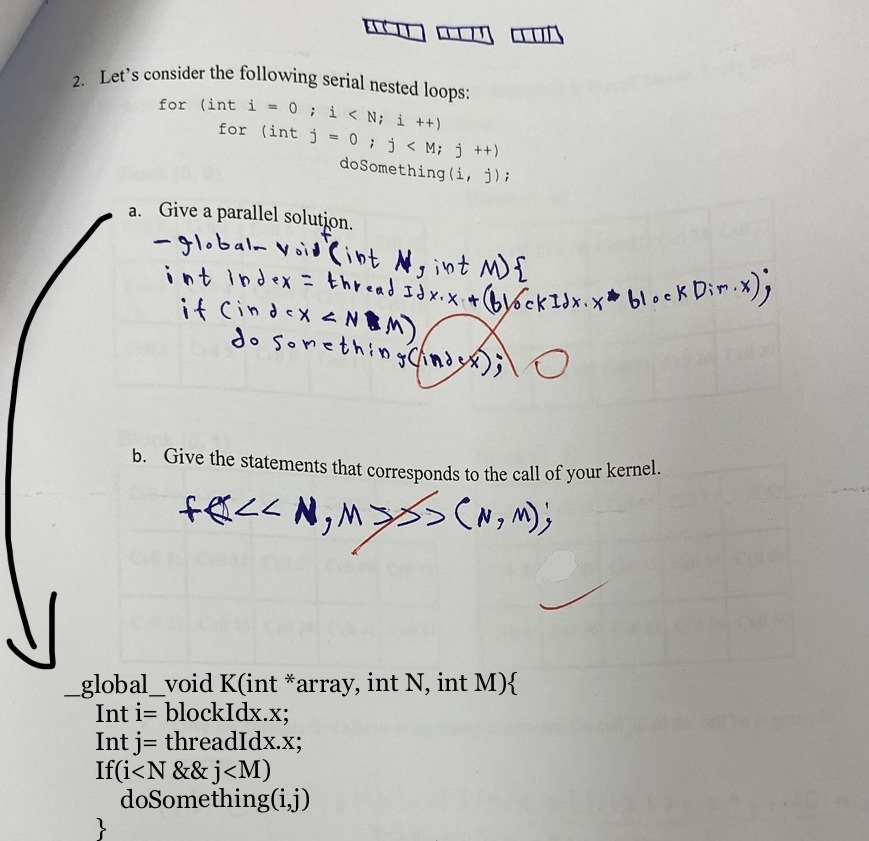 2. Let's consider the following serial nested loops:
for (int i = 0 ; i < N; i ++)
for (int j = 0 ; j < M; j ++)
doSomething(i, j);
a. Give a parallel solution.
f
-global- void (int N, int M){
int index = thread Idx.x + (blockIdx.x * blockDim.x);
if (index < N * M)
do something(index);
0
b. Give the statements that corresponds to the call of your kernel.
f <<< N, M >>> (N, M);
_global_void K(int *array, int N, int M){
Int i= blockIdx.x;
Int j= threadIdx.x;
If(i<N && j<M)
doSomething(i,j)
}